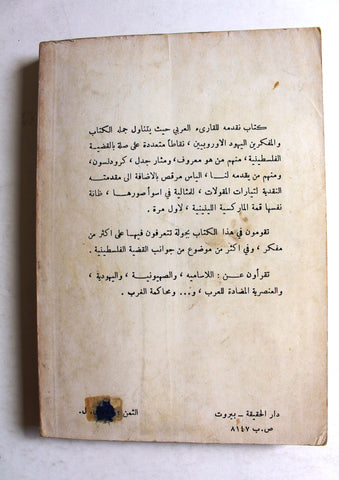 كتاب نقدمه للقارىء العربي حيث يتناول جمله الكتاب
والمفكرين اليهود الاوروبيين ، نقاطاً متعددة على صلة بالقضية
الفلسطينية ، منهم من هو معروف، ومثار جدل ، كرودنسون،
ومنهم من يقدمه لنا ، الياس مرقص بالاضافة الى مقدمته
النقدية لتيارات المقولات ، لفثالية في اسوأ صورها ، ظانة
نفسها قمة الماركسية اللينينية ، لاول مرة .
تقومون في هذا الكتاب بجولة تتعرفون فيها على اكثر من
مفكر ، وفي اكثر من موضوع من جوانب القضية الفلسطينية .
تقرأون عن : اللاساميه ، والصهيونية ، واليهودية ،
والعنصرية المضادة للعرب ، و... ومحاكمة الغرب .
دار الحقيقة – بيروت
ص.ب ٨١٤٧
الثمن ل.